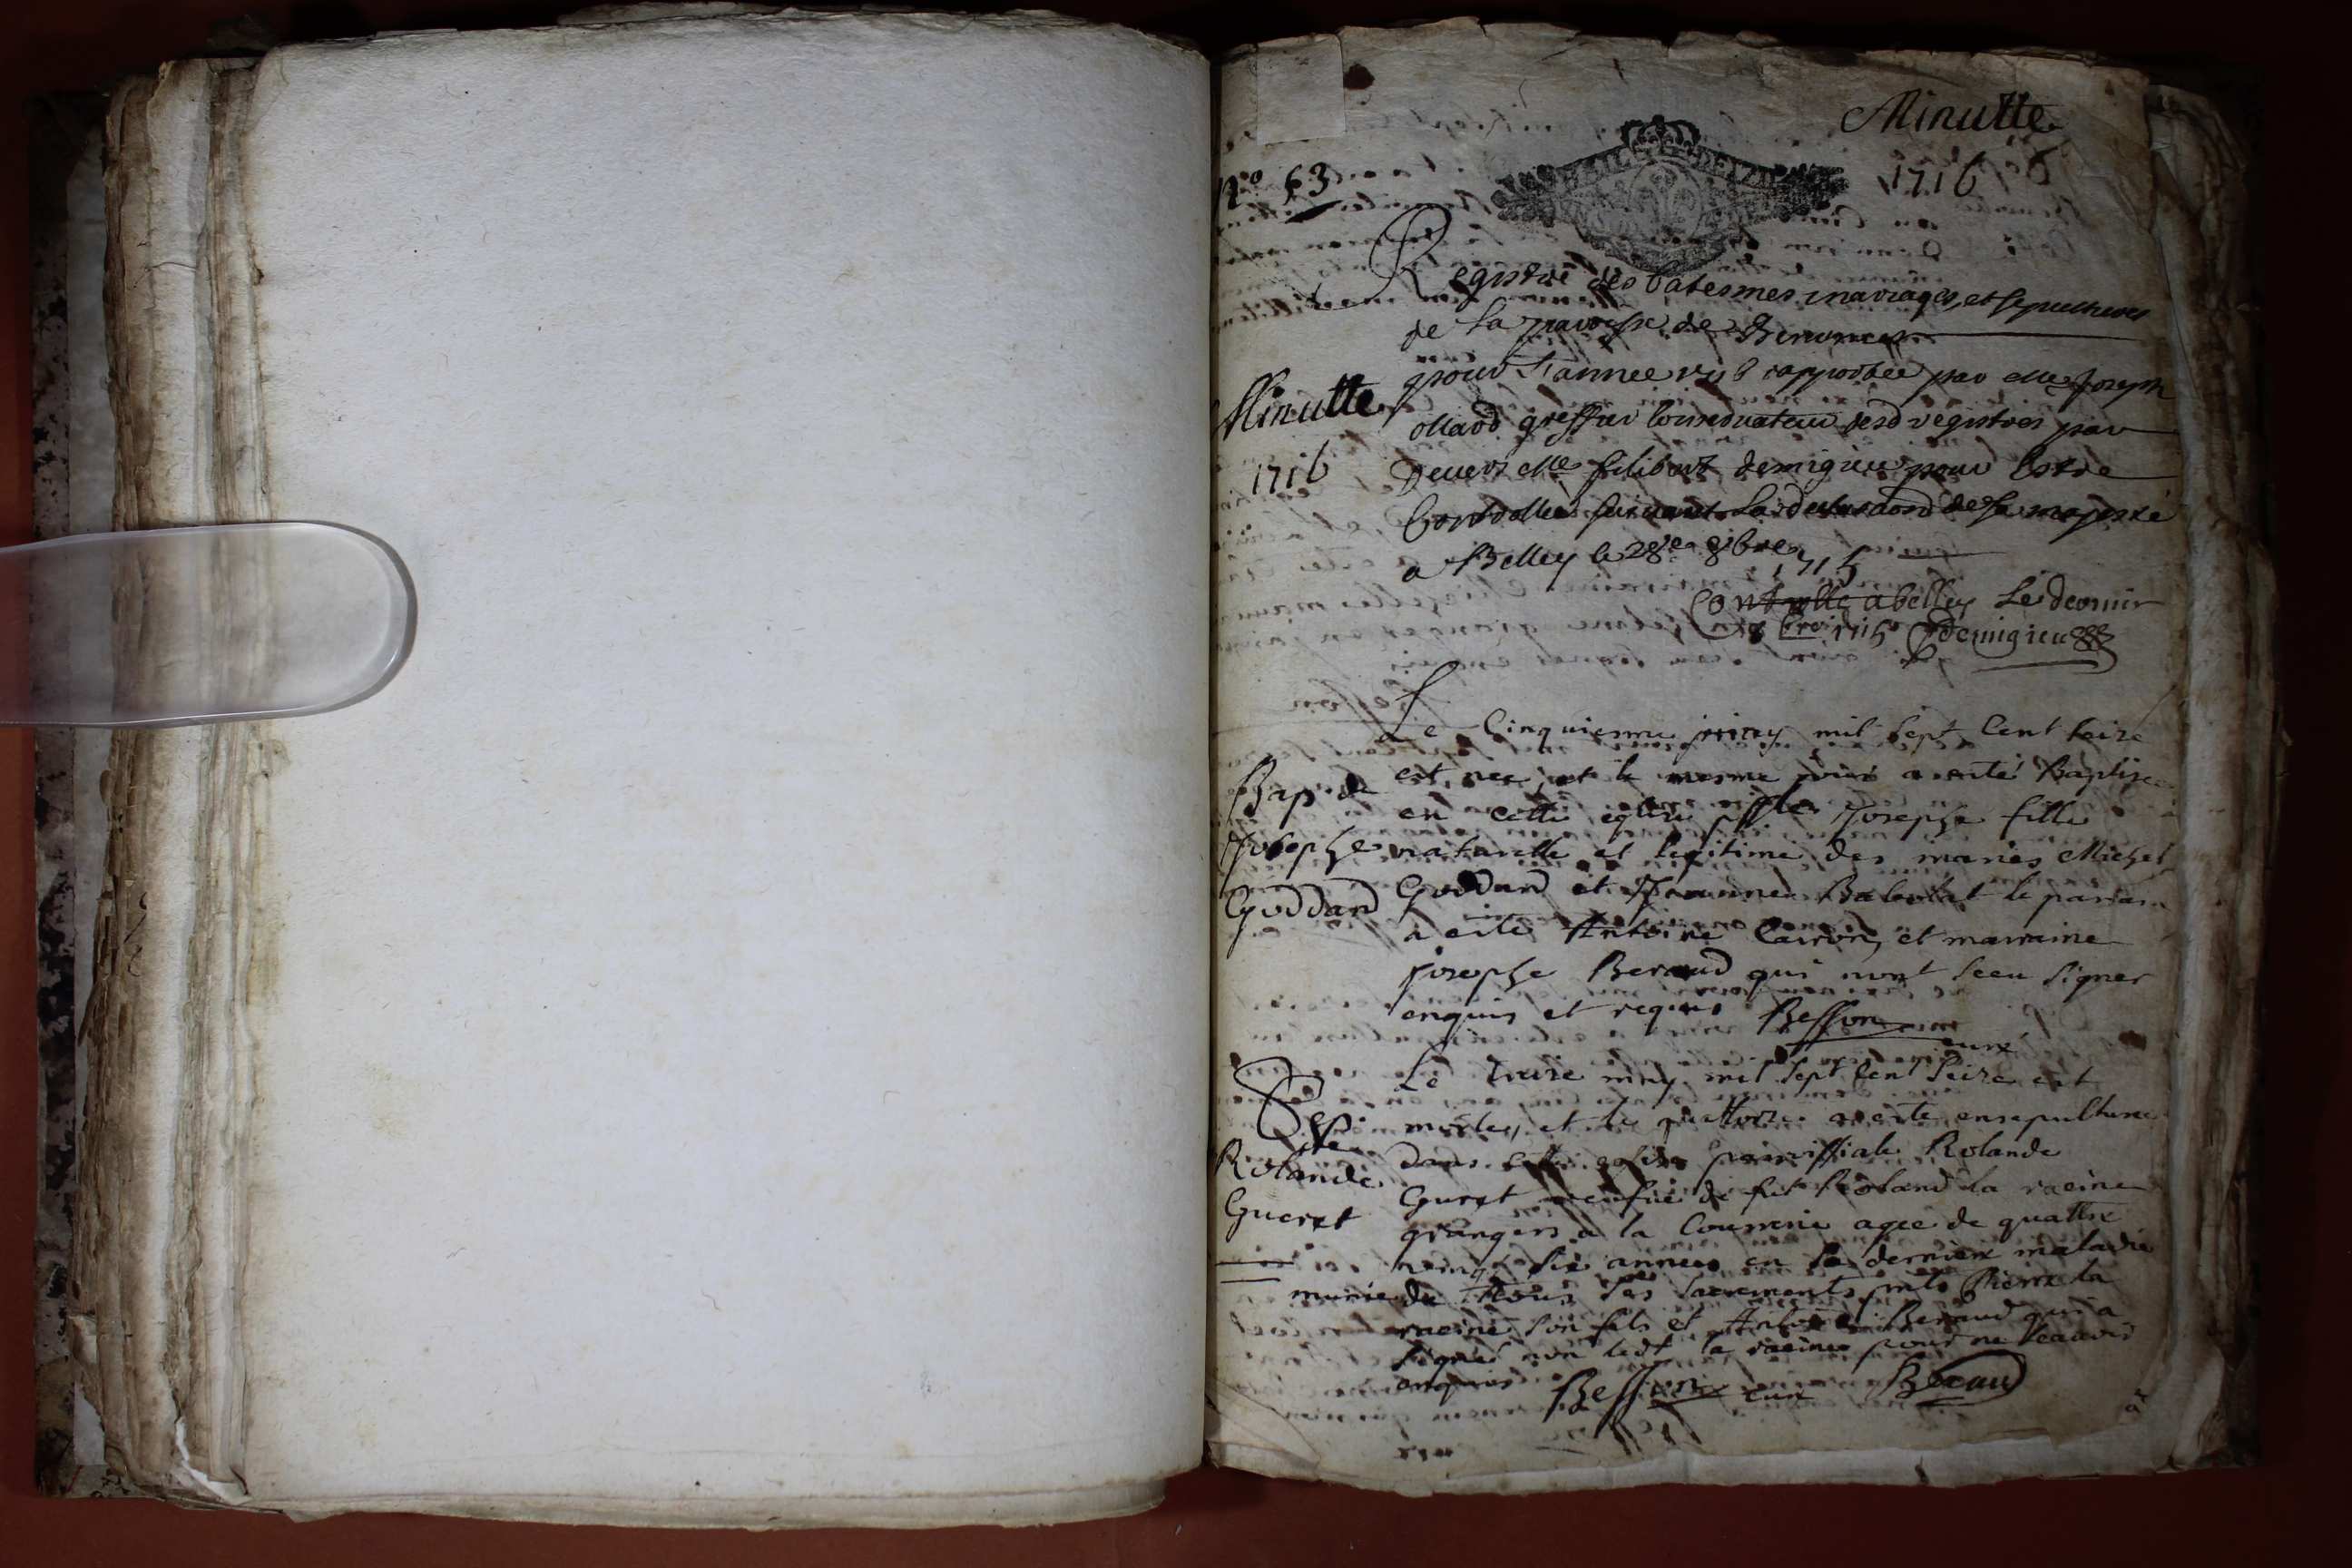 Minutte
1716
6
N° 63
Registre des batesmes, mariages, et sepultures
de la paroisse de Benonces
pour l'annee 1716 approbée par Me Joseph
ollard greffier conservateur desd registres par
devers Me filibert demigieu pour Estre
Controllé suivant la declaraon de sa majesté
a Belley le 28e 8bre
1715
Minutte
1716
Controllé a belley Le dernier
8bre 1715 demigieu
Bap de
Josephe
Goddard
Le Cinquieme mil sept Cent seize
est nee, et le mesme jour a esté Baptizee
en cette eglise Josephe fille
naturelle et legitime des maries Michel
Goddard et Jeanne Babolat le parrain
a esté Antoine Carron, et marraine
Josephe Beraud qui nont sceu signer
enquis et requis Besson
curé
Sep
de
Rolande
Gueret
Le treize may mil sept Cent seize est
morte, et le quattorze a esté ensepulturee
dans cette eglise parroissiale Rolande
Guret veufue de fut Roland la racine
grangers a la Courrerie agee de quattre
vingt six annees en sa derniere maladie
munie de tous les sacrements pnts Pierre la
racine son fils et Antoine Beraud qui a
signé non ledt la racine pour ne scauoir
enquis Besson curé Beraud